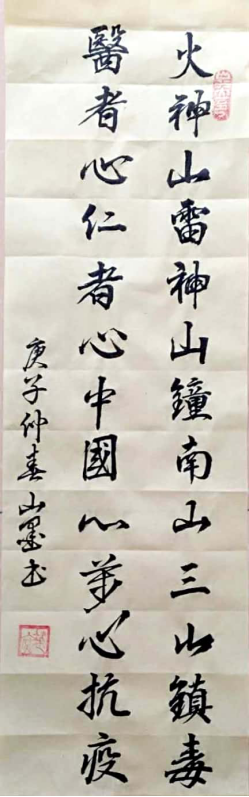 火神山雷神山鐘南山三山鎮毒
醫者心仁者心中國心萬心抗疫
庚子仲春山墨书